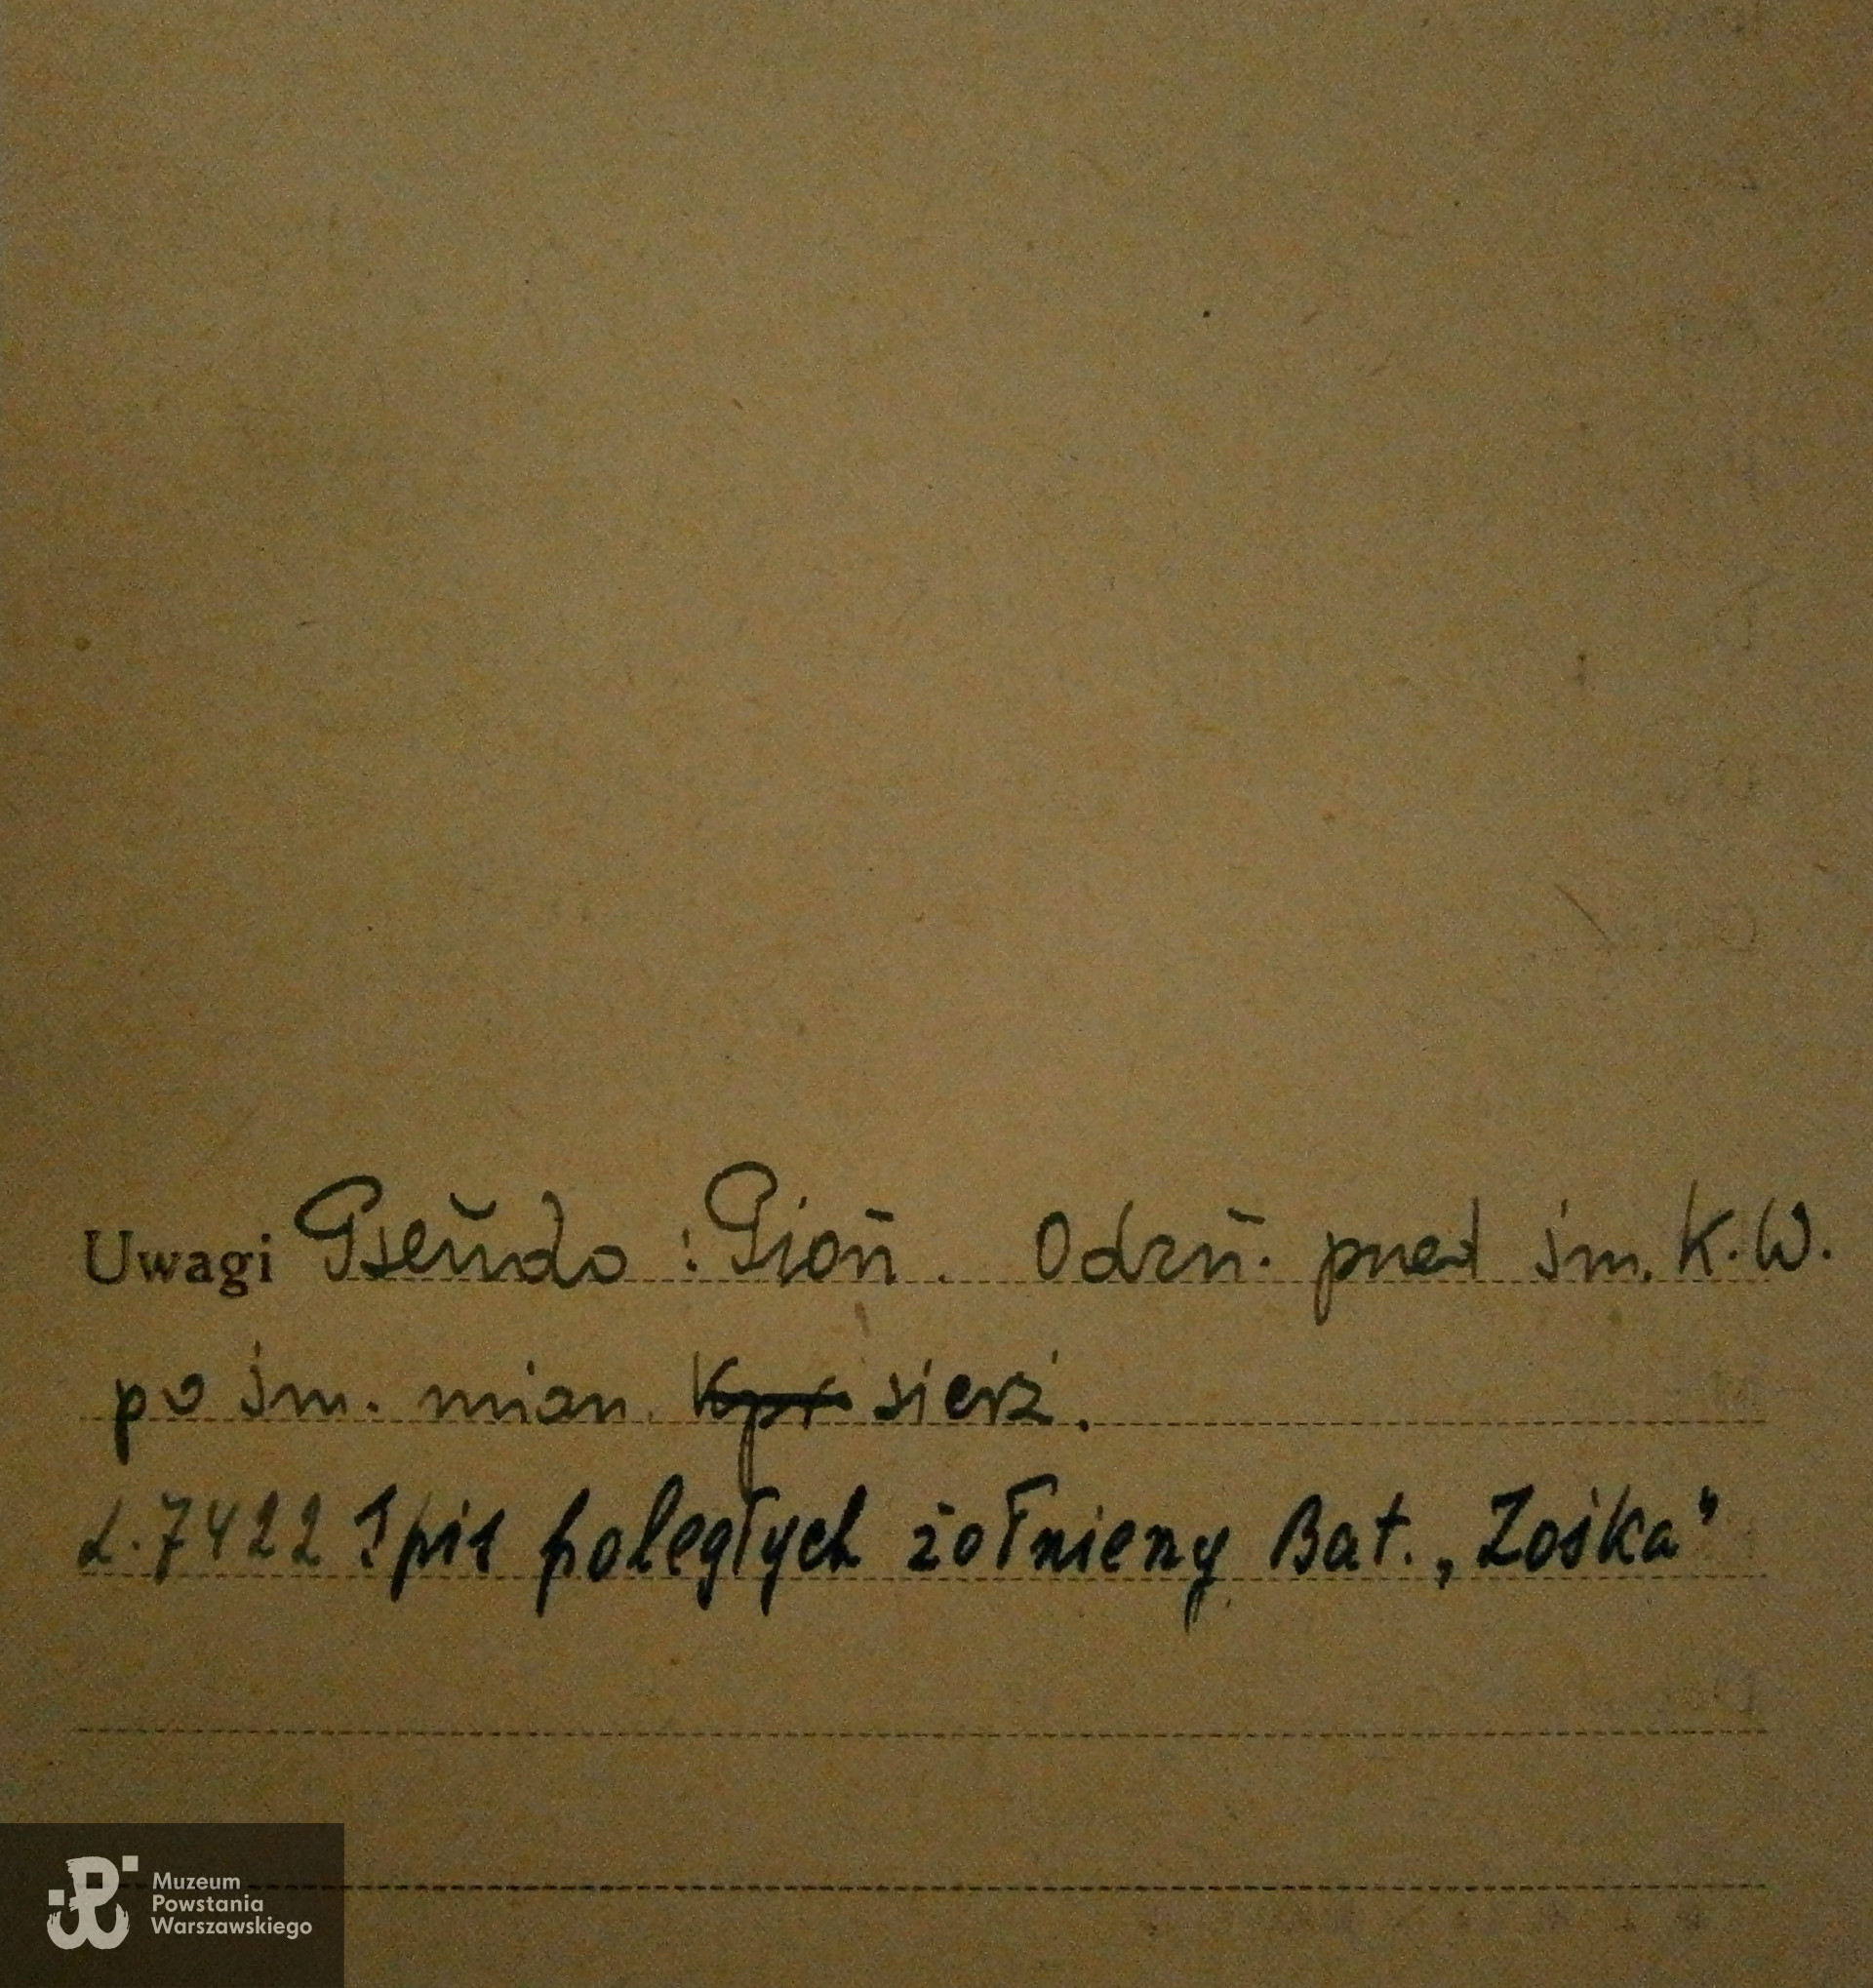 Uwagi Pseudo : Pion. Odzn. przed śm. K.W.
po śm. mian. kpr sierż.
L.7422 Spis poległych żołnierzy Bat. „Zośka”
Muzeum
Powstania
Warszawskiego